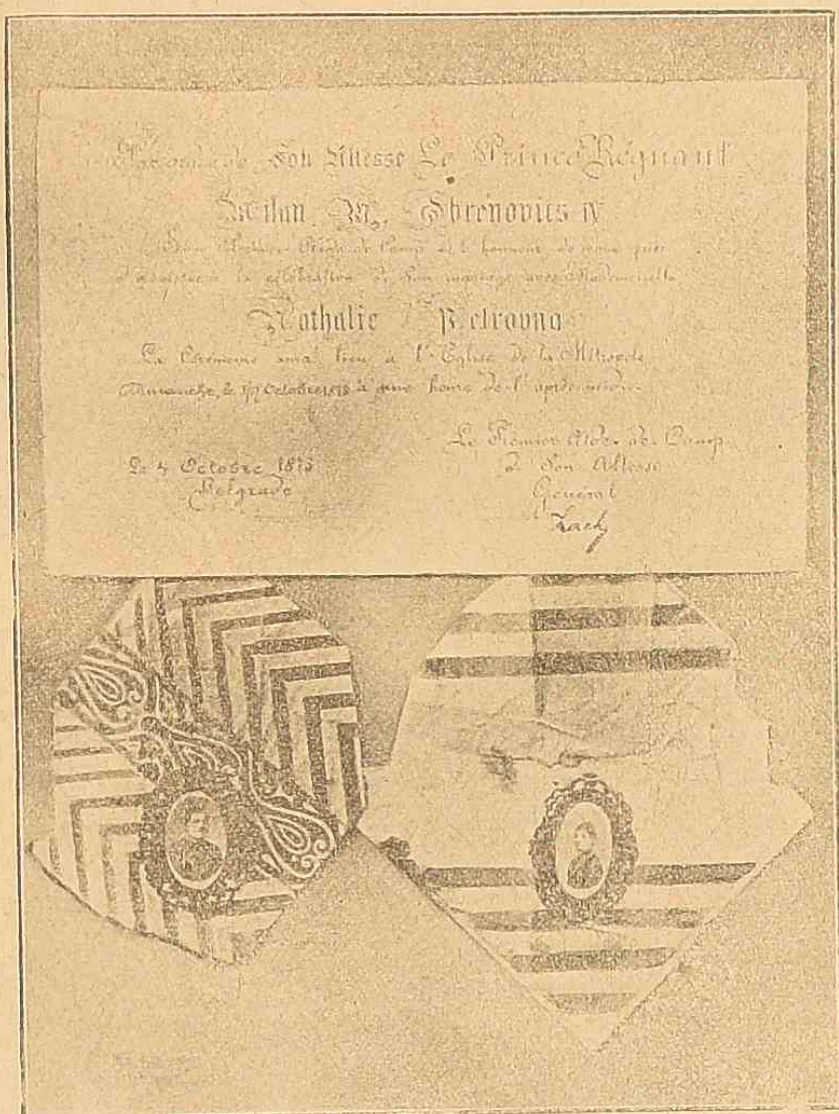 Par ordre de Son Altesse Le Prince Régnant
Milan M. Obrenovits IV
Son Premier Aide de Camp a l'honneur de vous prier
d'assister à la célébration de Son mariage avec Mademoiselle
Nathalie Petrovna
La Cérémonie aura lieu à l'Eglise de la Métropole,
Dimanche, le 5/17 Octobre 1875 à une heure de l'après-midi.
Le Premier Aide de Camp
de Son Altesse
Général
Zach
Le 4 Octobre 1875
Belgrade